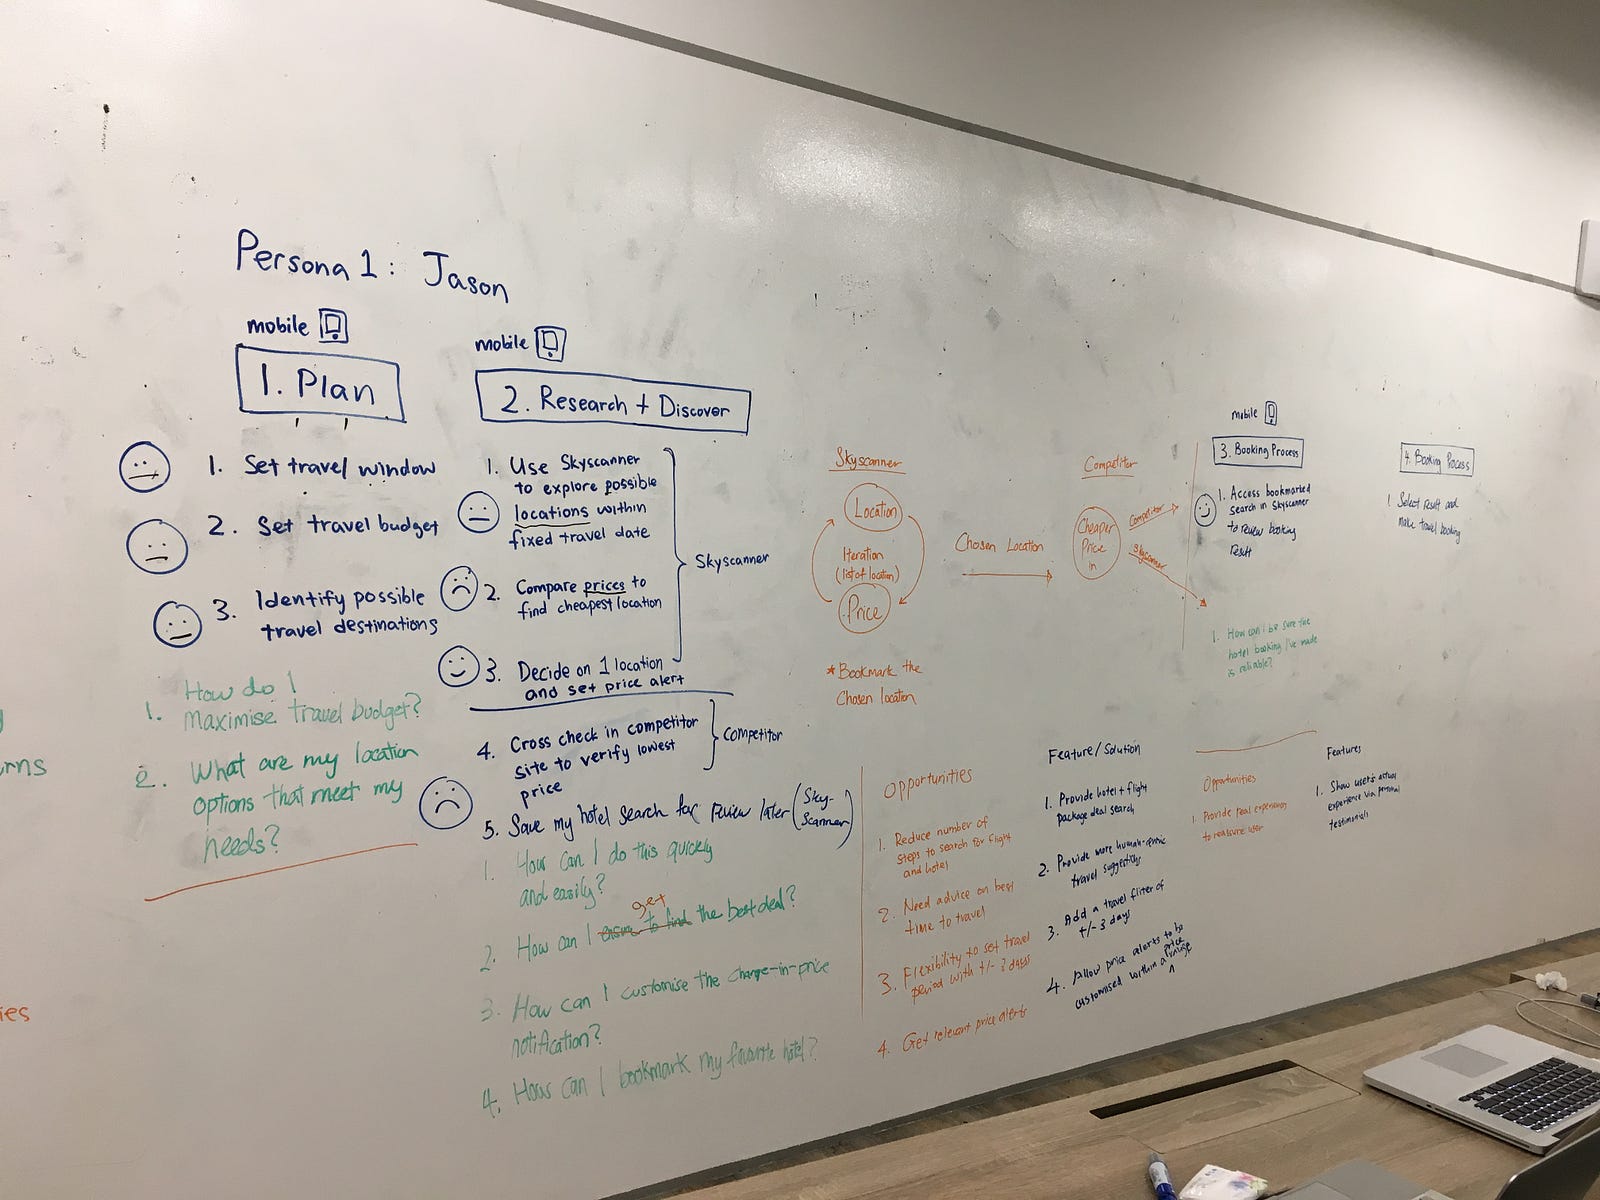 Persona 1: Jason
mobile
1. Plan
1. Set travel window
2. Set travel budget
3. Identify possible
travel destinations
1. How do I
maximise travel budget?
2. What are my location
options that meet my
needs?
mobile
2. Research + Discover
1. Use Skyscanner
to explore possible
locations within
fixed travel date
2. Compare prices to
find cheapest location
3. Decide on 1 location
and set price alert
Skyscanner
4. Cross check in competitor
site to verify lowest
price
Competitor
5. Save my hotel search for review later (Sky-
Scanner)
1. How can I do this quickly
and easily?
get
2. How can I ensure to find the best deal?
3. How can I customise the change-in-price
notification?
4. How can I bookmark my favourite hotel?
Skyscanner
Location
Iteration
(list of location)
Price
* Bookmark the
Chosen location
Chosen Location
Competitor
Cheaper
Price
in
Competitor
Skyscanner
mobile
3. Booking Process
1. Access bookmarked
search in Skyscanner
to review booking
result
1. How can I be sure the
hotel booking I've made
is reliable?
4. Booking Process
1 Select result and
make travel booking
Opportunities
1. Reduce number of
steps to search for flight
and hotel
2. Need advice on best
time to travel
3. Flexibility to set travel
period with +/- 3 days
4. Get relevant price alerts
Feature/Solution
1. Provide hotel + flight
package deal search
2. Provide more human-centric
travel suggestions
3. Add a travel filter of
+/- 3 days
4. Allow price alerts to be
customised within a price range
Opportunities
1. Provide real experiences
to reassure user
Features
1. Show user's actual
experience via personal
testimonials